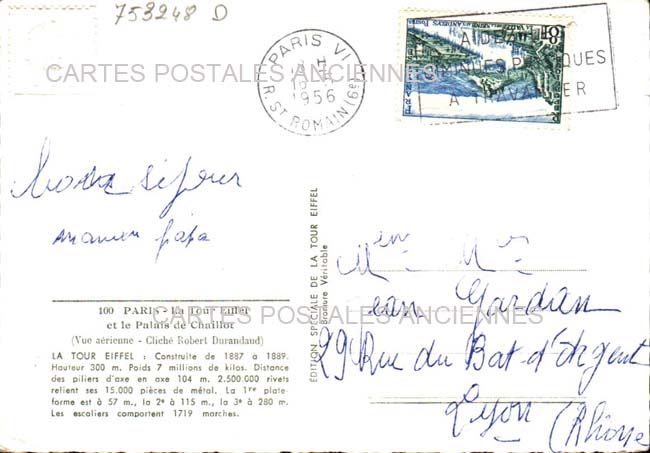 753248 D
PARIS VI
1956
R. ST ROMAIN (6e)
8F
AIDEZ
A TRAVAILLER
CARTES POSTALES ANCIENNES
Bons séjour
maman papa
100 PARIS - La Tour Eiffel
et le Palais de Chaillot
(Vue aérienne - Cliché Robert Durandaud)
LA TOUR EIFFEL : Construite de 1887 à 1889.
Hauteur 300 m. Poids 7 millions de kilos. Distance
des piliers d'axe en axe 104 m. 2.500.000 rivets
relient ses 15.000 pièces de métal. La 1re plate-
forme est à 57 m., la 2e à 115 m., la 3e à 280 m.
Les escaliers comportent 1719 marches.
ÉDITION SPÉCIALE DE LA TOUR EIFFEL
Bromure Véritable
Jean Gardan
CARTES POSTALES ANCIENNES
29 Rue du Bat-d'Argent
Lyon
(Rhône